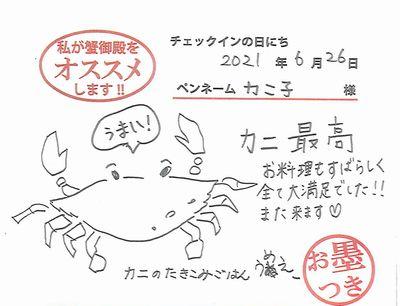 私が蟹御殿を
オススメ
します!!
チェックインの日にち
2021年6月26日
ペンネーム カニ子 様
うまい!
カニ 最高
お料理もすばらしく
全て大満足でした!!
また来ます♡
カニのたきこみごはん
お墨
つき